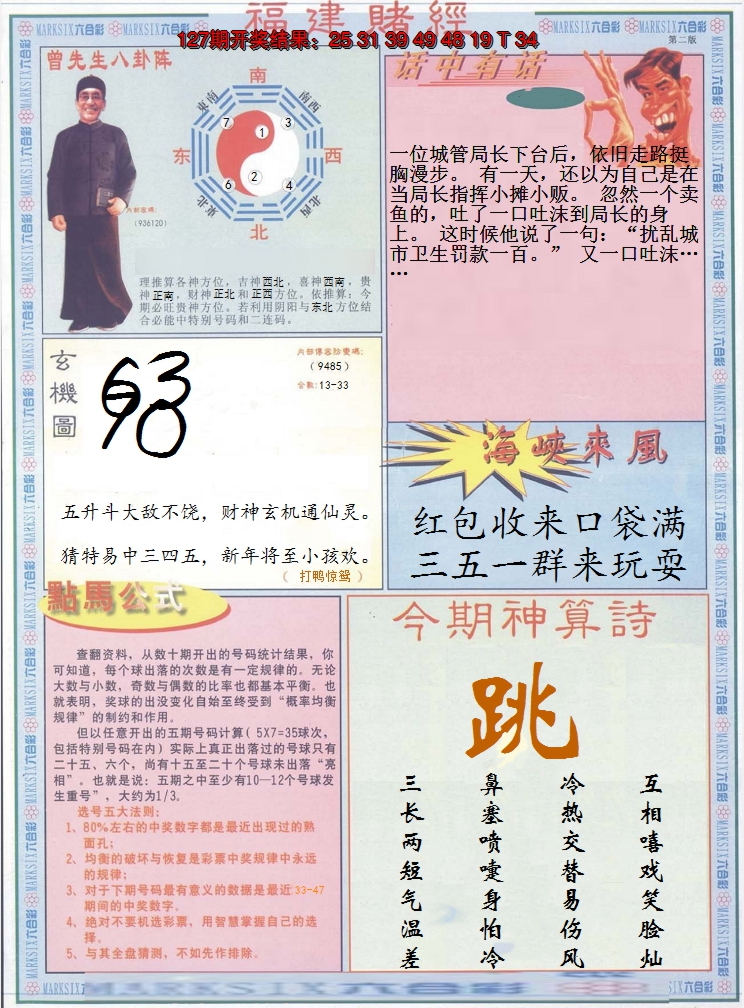 福建賭經
MARKSIX六合彩 MARKSIX六合彩 MARKSIX六合彩 MARKSIX六合彩
127期开奖结果：25 31 39 49 48 19 T 34
第二版
曾先生八卦阵
南
东南
南西
7
1
3
东
西
6
2
4
东北
西北
北
内部密碼：
（936120）
理推算各神方位，吉神西北，喜神西南，贵
神正南，财神正北和正西方位。依推算：今
期必旺贵神方位。若利用阴阳与东北方位结
合必能中特别号码和二连码。
话中有话
一位城管局长下台后，依旧走路挺
胸漫步。 有一天，还以为自己是在
当局长指挥小摊小贩。 忽然一个卖
鱼的，吐了一口吐沫到局长的身
上。 这时候他说了一句：“扰乱城
市卫生罚款一百。” 又一口吐沫…
…
玄機圖
内部傳密防變碼：
（9485）
合数：13-33
五升斗大敌不饶，财神玄机通仙灵。
猜特易中三四五，新年将至小孩欢。
（ 打鸭惊鸳 ）
海峽來風
红包收来口袋满
三五一群来玩耍
點馬公式
查翻资料，从数十期开出的号码统计结果，你
可知道，每个球出落的次数是有一定规律的。无论
大数与小数，奇数与偶数的比率也都基本平衡。也
就表明，奖球的出没变化自始至终受到“概率均衡
规律”的制约和作用。
但以任意开出的五期号码计算( 5X7=35球次，
包括特别号码在内) 实际上真正出落过的号球只有
二十五、六个，尚有十五至二十个号球未出落“亮
相”。也就是说：五期之中至少有10—12个号球发
生重号”，大约为1/3。
选号五大法则：
1、80%左右的中奖数字都是最近出现过的熟
面孔；
2、均衡的破坏与恢复是彩票中奖规律中永远
的规律；
3、对于下期号码最有意义的数据是最近33-47
期间的中奖数字。
4、绝对不要机选彩票，用智慧掌握自己的选
择。
5、与其全盘猜测，不如先作排除。
今期神算詩
跳
三长两短气温差
鼻塞喷嚏身怕冷
冷热交替易伤风
互相嘻戏笑脸灿
MARKSIX六合彩